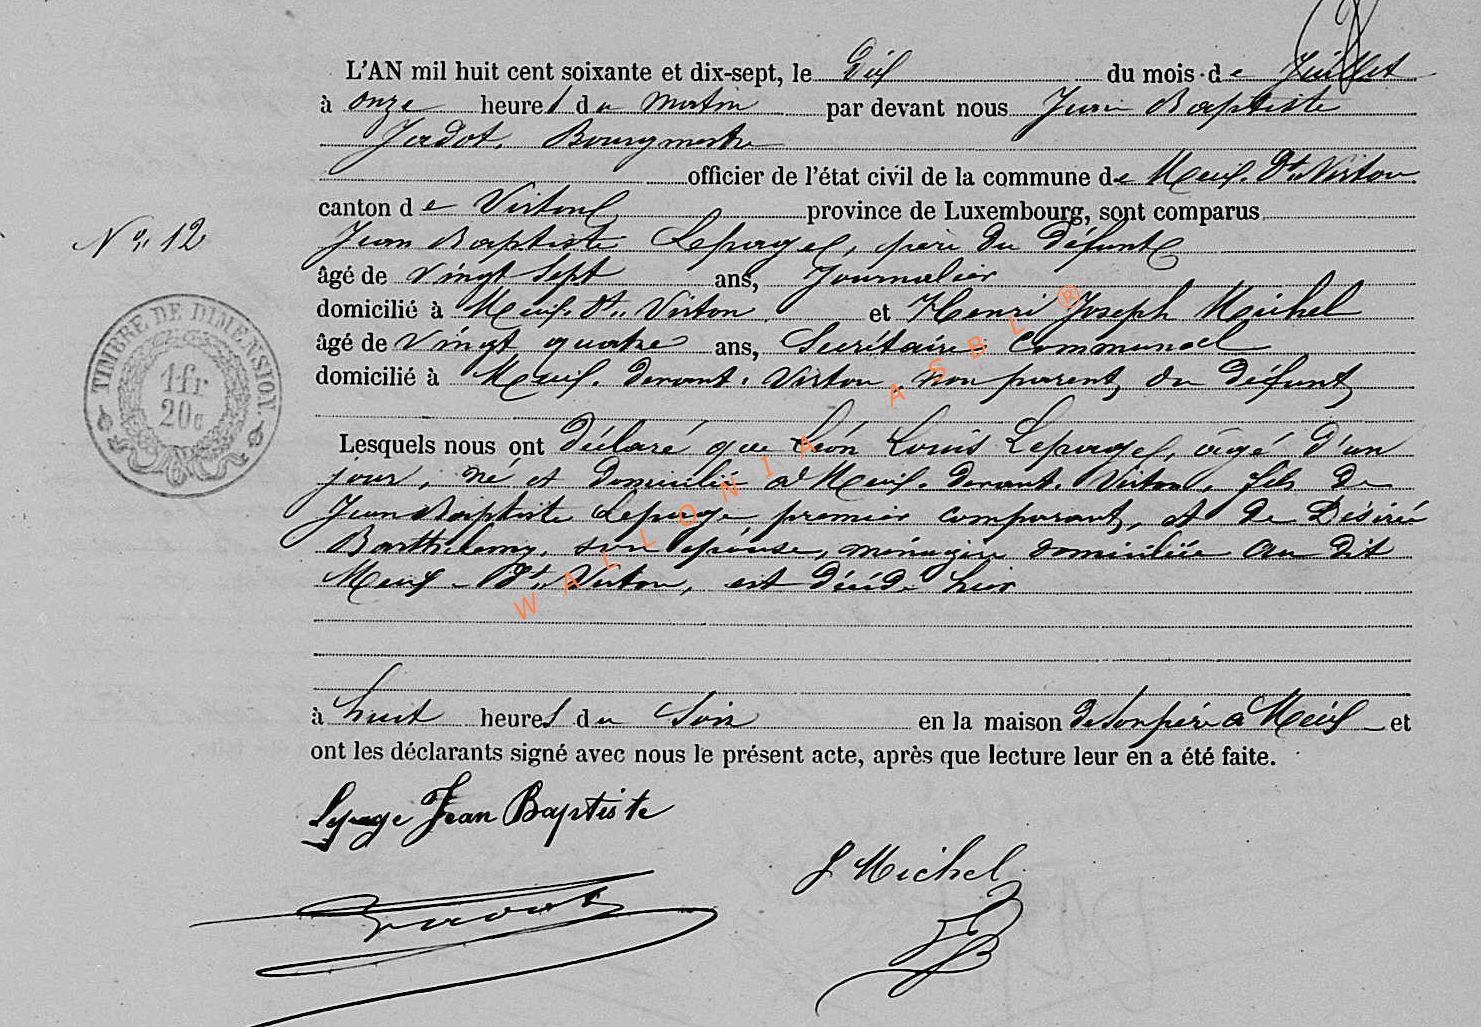 L'AN mil huit cent soixante et dix-sept, le Dix du mois de Juillet
à onze heures du matin par devant nous Jean Baptiste
Jadot, Bourgmestre
officier de l'état civil de la commune de Meix-Dt-Virton
canton de Virton province de Luxembourg, sont comparus
Jean Baptiste Lepage, père du défunt
âgé de vingt sept ans, Journalier
domicilié à Meix-Dt-Virton et Henri Joseph Michel
âgé de vingt quatre ans, Secrétaire Communal
domicilié à Meix-devant-Virton, non parent, du défunt
Lesquels nous ont déclaré que Léon Louis Lepage, âgé d'un
jour, né et domicilié à Meix-devant-Virton, fils de
Jean Baptiste Lepage premier comparant, et de Désirée
Barthelemy, son épouse, ménagère domiciliée au dit
Meix-Dt-Virton, est décédé hier
à huit heures du soir en la maison de son père à Meix et
ont les déclarants signé avec nous le présent acte, après que lecture leur en a été faite.
No. 12
TIMBRE DE DIMENSION
1 fr
20 c
Lepage Jean Baptiste
J Michel
Jadot
WALLONIA ASBL ®